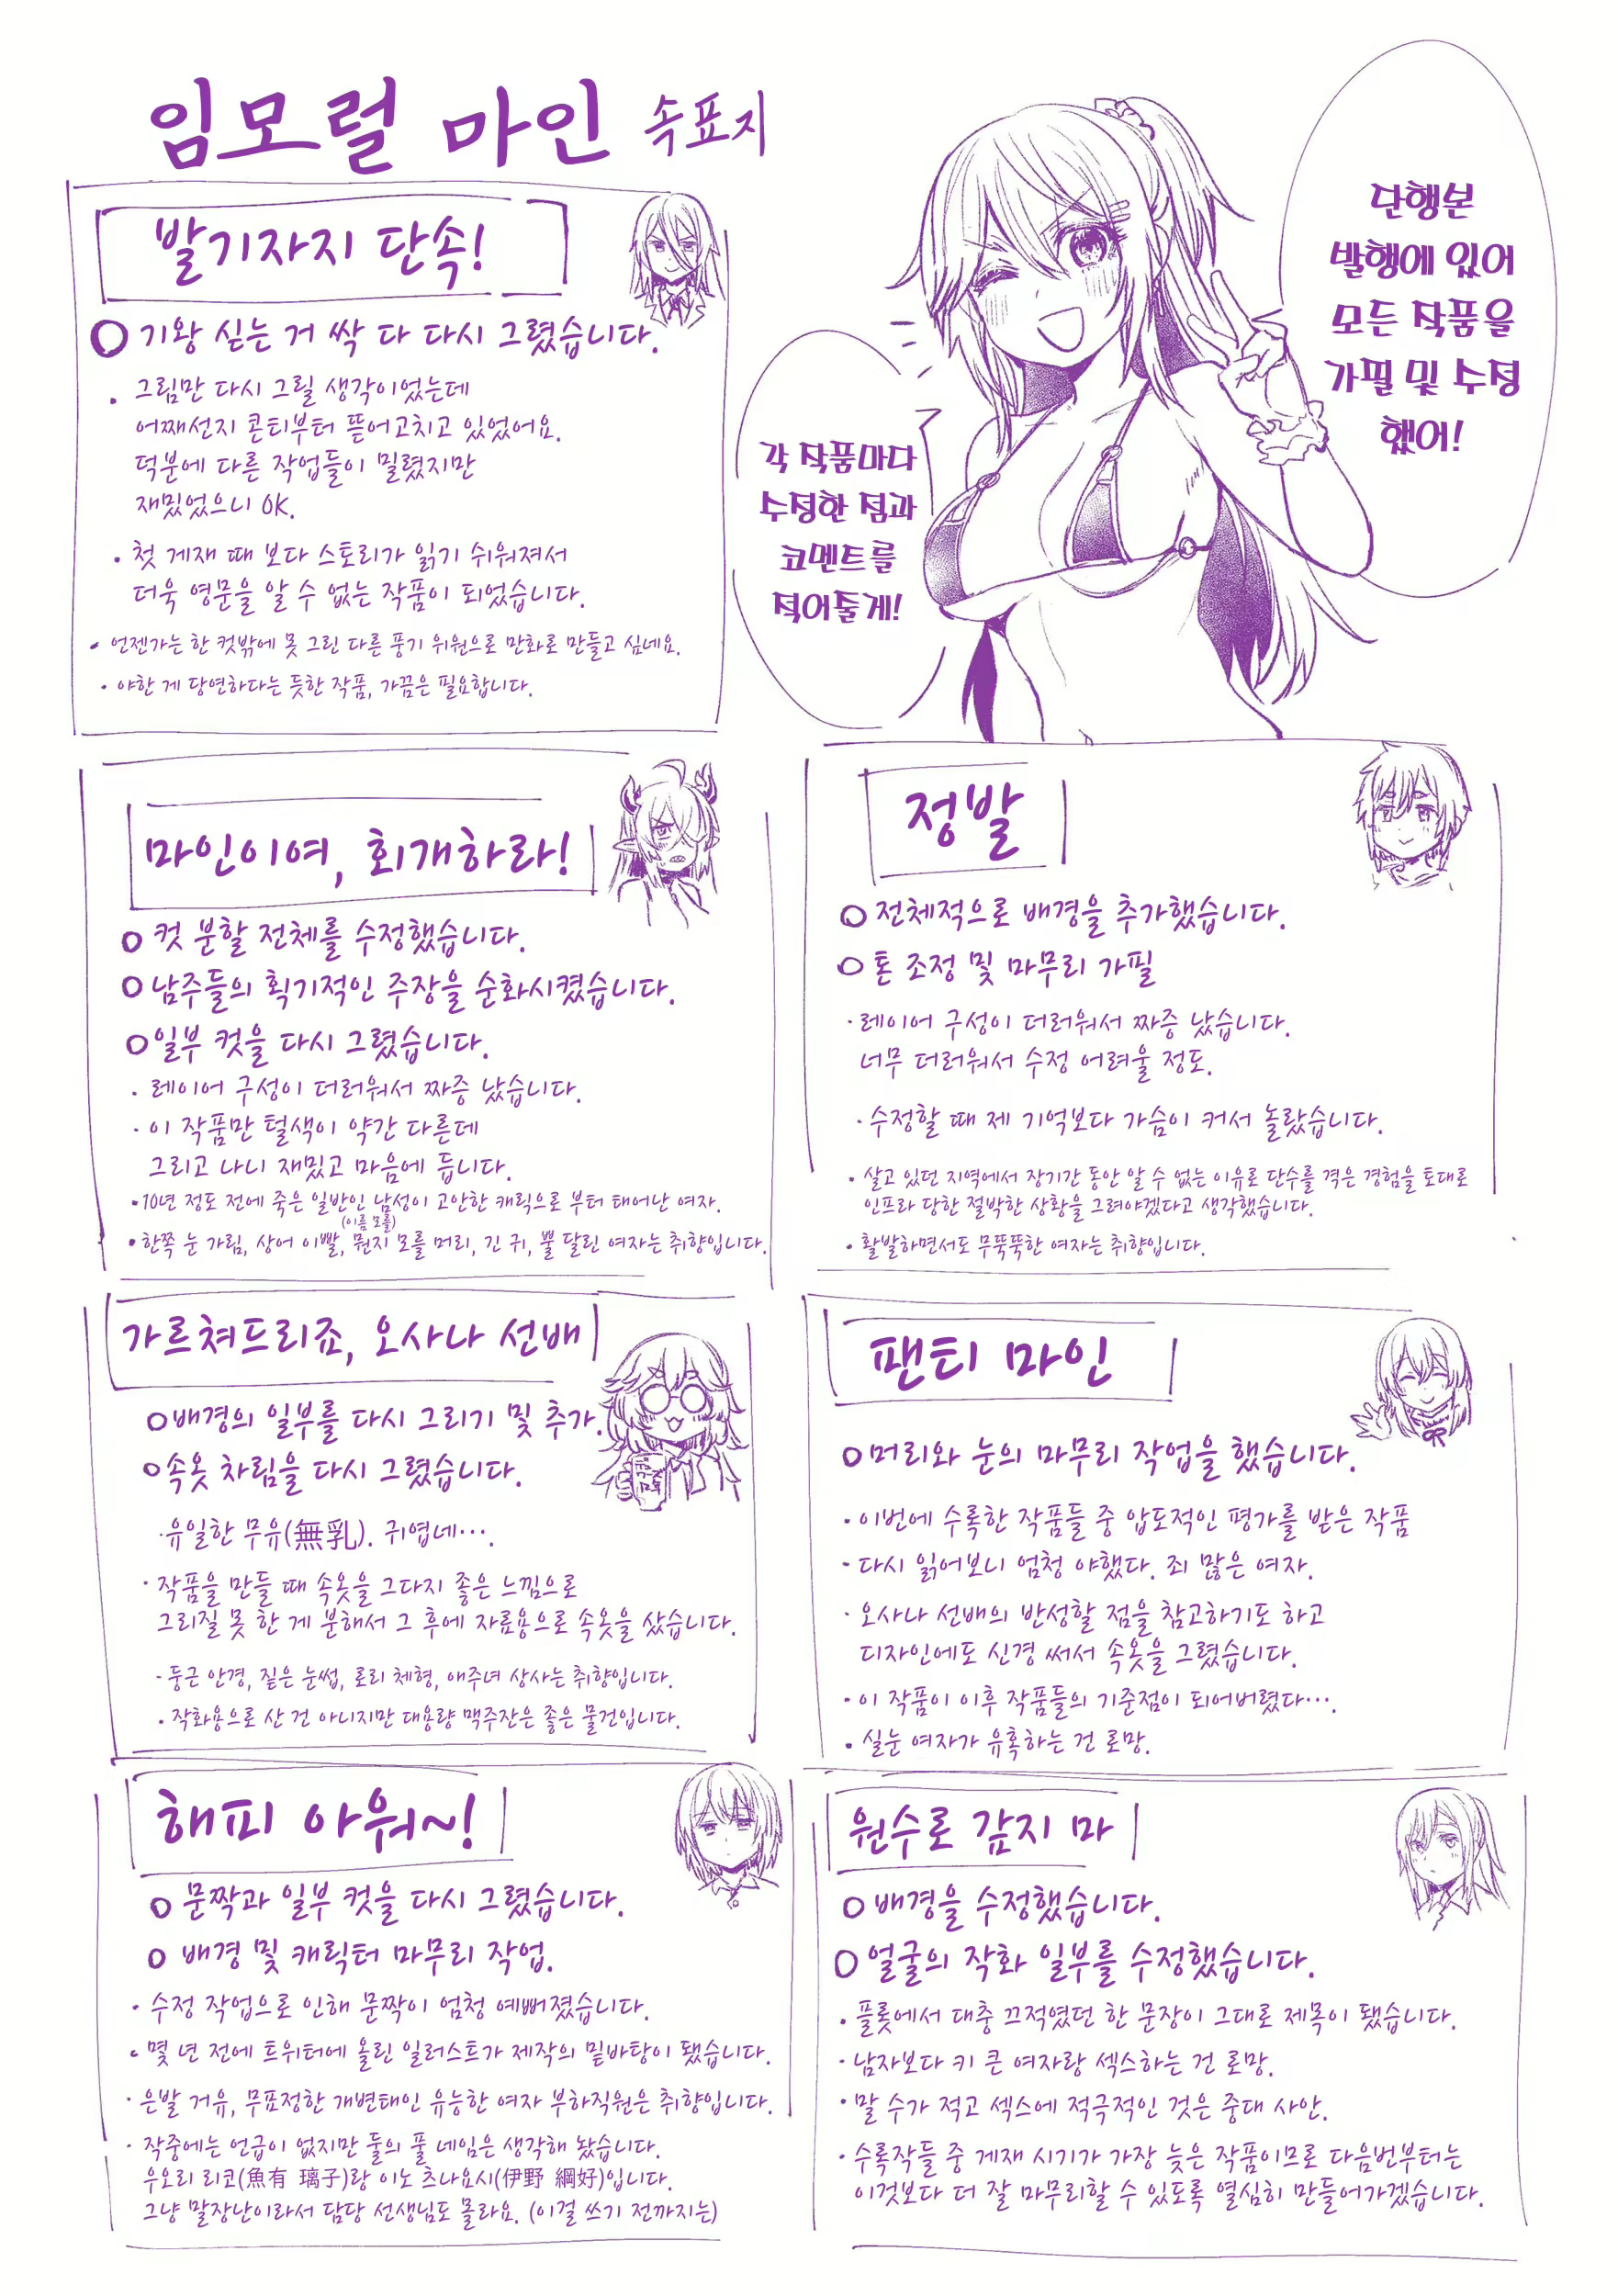 임모럴 마인 속표지
단행본
발행에 있어
모든 작품을
가필 및 수정
했어!
각 작품마다
수정한 점과
코멘트를
적어둘게!
발기자지 단속!
○ 기왕 싣는 거 싹 다 다시 그렸습니다.
· 그림만 다시 그릴 생각이었는데
어째선지 콘티부터 뜯어고치고 있었어요.
덕분에 다른 작업들이 밀렸지만
재밌었으니 OK.
· 첫 게재 때 보다 스토리가 읽기 쉬워져서
더욱 영문을 알 수 없는 작품이 되었습니다.
· 언젠가는 한 컷밖에 못 그린 다른 풍기 위원으로 만화로 만들고 싶네요.
· 야한 게 당연하다는 듯한 작품, 가끔은 필요합니다.
마인이여, 회개하라!
○ 컷 분할 전체를 수정했습니다.
○ 남주들의 획기적인 주장을 순화시켰습니다.
○ 일부 컷을 다시 그렸습니다.
· 레이어 구성이 더러워서 짜증 났습니다.
· 이 작품만 털색이 약간 다른데
그리고 나니 재밌고 마음에 듭니다.
· 10년 정도 전에 죽은 일반인 남성이 고안한 캐릭으로 부터 태어난 여자.
(이름 모를)
· 한쪽 눈 가림, 상어 이빨, 뭔지 모를 머리, 긴 귀, 뿔 달린 여자는 취향입니다.
정발
○ 전체적으로 배경을 추가했습니다.
○ 톤 조정 및 마무리 가필
· 레이어 구성이 더러워서 짜증 났습니다.
너무 더러워서 수정 어려울 정도.
· 수정할 때 제 기억보다 가슴이 커서 놀랐습니다.
· 살고 있던 지역에서 장기간 동안 알 수 없는 이유로 단수를 격은 경험을 토대로
인프라 당한 절박한 상황을 그려야겠다고 생각했습니다.
· 활발하면서도 무뚝뚝한 여자는 취향입니다.
가르쳐드리죠, 오사나 선배
○ 배경의 일부를 다시 그리기 및 추가.
○ 속옷 차림을 다시 그렸습니다.
· 유일한 무유(無乳). 귀엽네….
· 작품을 만들 때 속옷을 그다지 좋은 느낌으로
그리질 못 한 게 분해서 그 후에 자료용으로 속옷을 샀습니다.
· 둥근 안경, 짙은 눈썹, 로리 체형, 애주녀 상사는 취향입니다.
· 작화용으로 산 건 아니지만 대용량 맥주잔은 좋은 물건입니다.
팬티 마인
○ 머리와 눈의 마무리 작업을 했습니다.
· 이번에 수록한 작품들 중 압도적인 평가를 받은 작품
· 다시 읽어보니 엄청 야했다. 죄 많은 여자.
· 오사나 선배의 반성할 점을 참고하기도 하고
디자인에도 신경 써서 속옷을 그렸습니다.
· 이 작품이 이후 작품들의 기준점이 되어버렸다….
· 실눈 여자가 유혹하는 건 로망.
해피 아워~!
○ 문짝과 일부 컷을 다시 그렸습니다.
○ 배경 및 캐릭터 마무리 작업.
· 수정 작업으로 인해 문짝이 엄청 예뻐졌습니다.
· 몇 년 전에 트위터에 올린 일러스트가 제작의 밑바탕이 됐습니다.
· 은발 거유, 무표정한 개변태인 유능한 여자 부하직원은 취향입니다.
· 작중에는 언급이 없지만 둘의 풀 네임은 생각해 놨습니다.
우오리 리코(魚有 璃子)랑 이노 츠나요시(伊野 綱好)입니다.
그냥 말장난이라서 담당 선생님도 몰라요. (이걸 쓰기 전까지는)
원수로 갚지 마
○ 배경을 수정했습니다.
○ 얼굴의 작화 일부를 수정했습니다.
· 플롯에서 대충 끄적였던 한 문장이 그대로 제목이 됐습니다.
· 남자보다 키 큰 여자랑 섹스하는 건 로망.
· 말 수가 적고 섹스에 적극적인 것은 중대 사안.
· 수록작들 중 게재 시기가 가장 늦은 작품이므로 다음번부터는
이것보다 더 잘 마무리할 수 있도록 열심히 만들어가겠습니다.